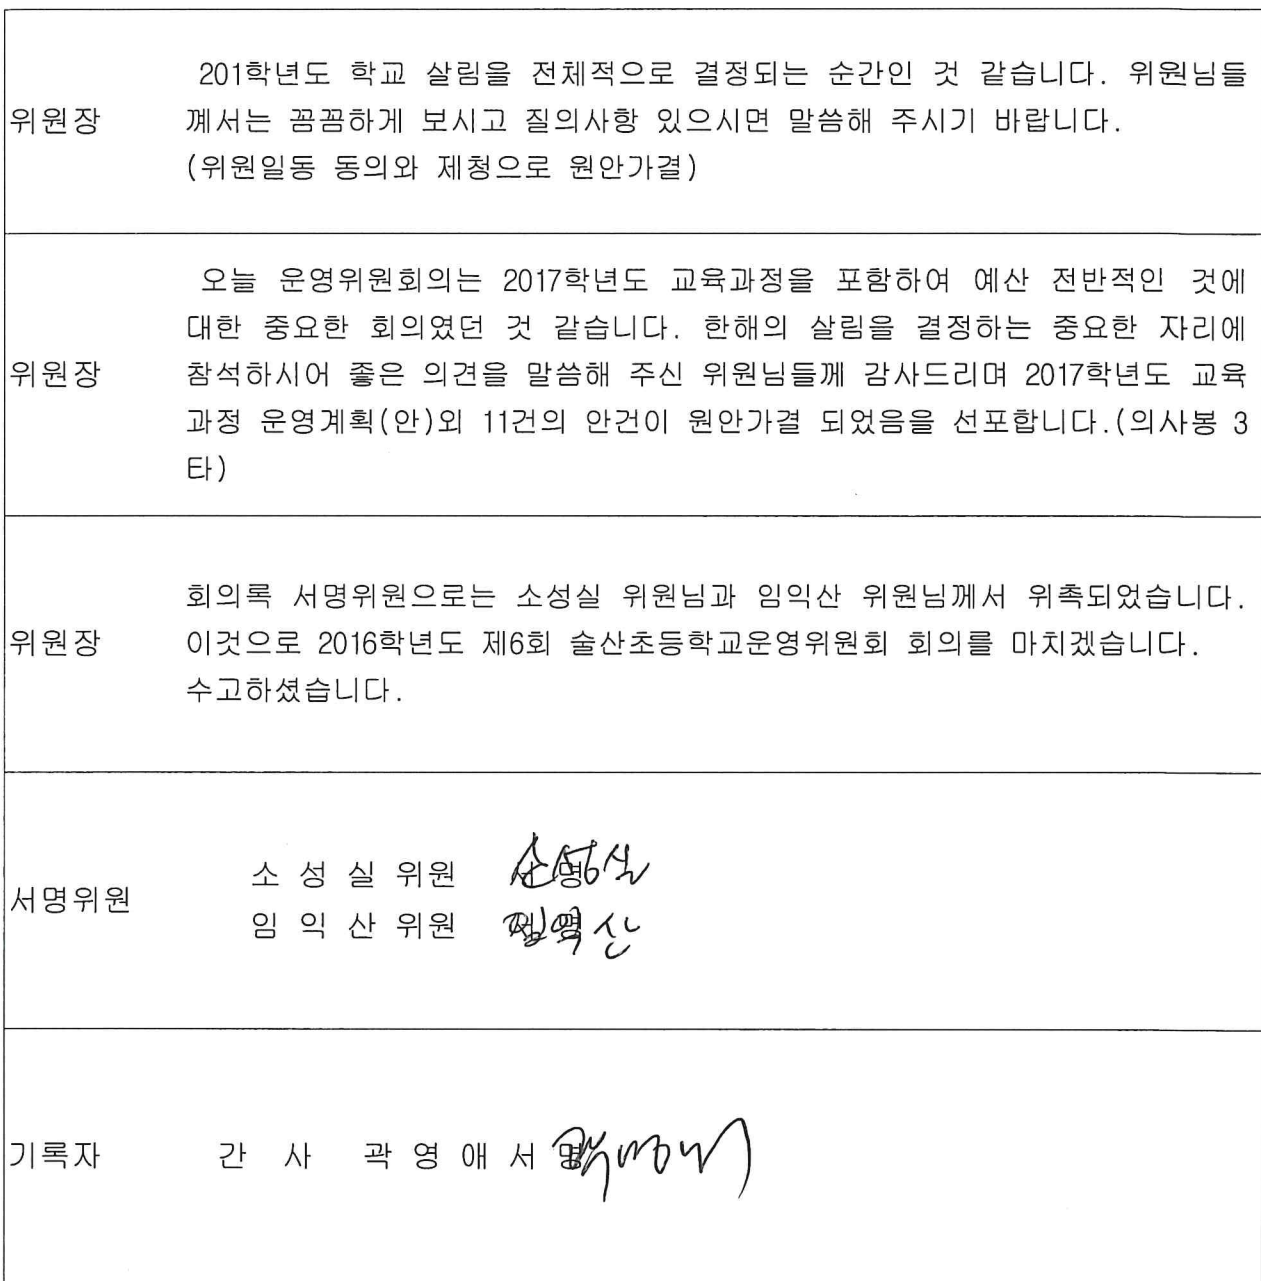 201학년도 학교 살림을 전체적으로 결정되는 순간인 것 같습니다. 위원님들
위원장 꼐서는 꼼꼼하게 보시고 질의사항 있으시면 말씀해 주시기 바랍니다.
(위원일동 동의와 제청으로 원안가결)
오늘 운영위원회의는 2017학년도 교육과정을 포함하여 예산 전반적인 것에
대한 중요한 회의였던 것 같습니다. 한해의 살림을 결정하는 중요한 자리에
위원장 참석하시어 좋은 의견을 말씀해 주신 위원님들께 감사드리며 2017학년도 교육
과정 운영계획(안)외 11건의 안건이 원안가결 되었음을 선포합니다.(의사봉 3
타)
회의록 서명위원으로는 소성실 위원님과 임익산 위원님께서 위촉되었습니다.
위원장 이것으로 2016학년도 제6회 술산초등학교운영위원회 회의를 마치겠습니다.
수고하셨습니다.
서명위원
소 성 실 위원 서명 소성실
임 익 산 위원 서명 임익산
기록자 간 사 곽 영 애 서 명